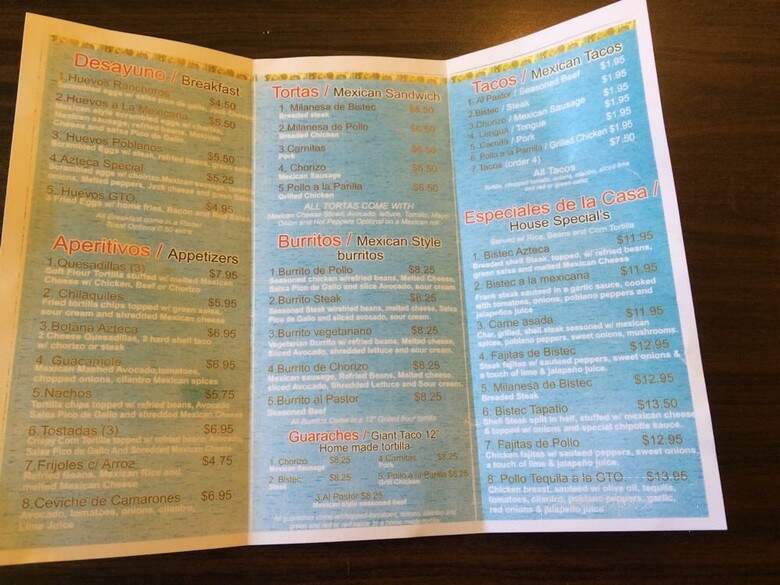 Desayuno / Breakfast
1. Huevos Rancheros $4.50
2. Huevos a La Mexicana $5.50
3. Huevos Poblanos $5.50
4. Azteca Special $5.25
5. Huevos GTO. $4.95
3 Fried Eggs w/ home fries, Bacon and
Aperitivos / Appetizers
1. Quesadillas (3) $7.95
Soft Flour Tortilla stuffed w/ melted Mexican
Cheese w/ Chicken, Beef or Chorizo
2. Chilaquiles $5.95
Fried tortilla chips topped w/ green salsa,
sour cream and shredded Mexican cheese
3. Botana Azteca $6.95
2 Cheese Quesadillas, 2 hard shell taco
w/ chorizo or steak
4. Guacamole $6.95
Mexican Mashed Avocado, tomatoes,
chopped onions, cilantro Mexican spices
5. Nachos $5.75
Tortilla chips topped w/ refried beans,
Salsa Pico de Gallo and shredded Mexican Cheese
6. Tostadas (3) $6.95
Crispy Corn Tortilla topped w/ refried
Salsa Pico de Gallo
7. Frijoles c/ Arroz $4.75
Refried Beans, Mexican Rice and
Melted Mexican Cheese
8. Ceviche de Camarones $6.95
tomatoes, onions, cilantro,
Lime Juice
Tortas / Mexican Sandwich
1. Milanesa de Bistec $6.50
Breaded steak
2. Milanesa de Pollo $6.50
Breaded Chicken
3. Carnitas $6.50
Pork
4. Chorizo $6.50
Mexican Sausage
5. Pollo a la Parilla $6.50
Grilled Chicken
ALL TORTAS COME WITH
Mexican Cheese Sliced, Avocado, lettuce, Tomato, Mayo
Onion and Hot Peppers Optional on a Mexican roll
Burritos / Mexican Style
burritos
1. Burrito de Pollo $8.25
Seasoned chicken w/refried beans, Melted Cheese,
Pico de Gallo and slice Avocado, sour cream.
2. Burrito Steak $8.25
Seasoned Steak w/refried beans, melted cheese, Salsa
Pico de Gallo and sliced avocado, sour cream.
3. Burrito vegetariano $8.25
Vegetarian Burrito w/ refried beans, Melted cheese,
Sliced Avocado, shredded lettuce and sour cream.
4. Burrito de Chorizo $8.25
Mexican sausage, Refried Beans, Melted cheese,
sliced Avocado, Shredded Lettuce and Sour cream.
5. Burrito al Pastor $8.25
Seasoned Beef
All Burritos Come in a 12" Grilled flour tortilla
Guaraches / "Giant Taco 12"
Home made tortilla-
1. Chorizo $8.25
Mexican Sausage
4. Carnitas $8.25
Pork
2. Bistec $8.25
5. Pollo a la Parrilla $8.25
3. Al Pastor $8.25
Mexican style seasoned beef
Tacos / Mexican Tacos
1. Al Pastor / Seasoned Beef $1.95
2. Bistec / Steak $1.95
3. Chorizo / Mexican Sausage $1.95
4. Lengua / Tongue $1.95
5. Carnita / Pork $1.95
6. Pollo a la Parrilla / Grilled Chicken $1.95
7. Tacos (order 4) $7.50
All Tacos
Especiales de la Casa /
House Special's
Served w/ Rice, Beans and Corn Tortilla
1. Bistec Azteca $11.95
Breaded shell Steak, topped, w/ refried beans,
green salsa and melted Mexican Cheese
2. Bistec a la mexicana $11.95
Frank steak cooked in a garlic sauce, cooked
with tomatoes, onions, poblano peppers and
jalapeños juice
3. Carne asada $11.95
Char, grilled, shell steak seasoned w/ mexican
spices, poblano peppers, sweet onions, mushrooms.
4. Fajitas de Bistec $12.95
Steak fajitas w/ sauteed peppers, sweet onions &
a touch of lime & jalapeño juice.
5. Milanesa de Bistec $12.95
Breaded Steak
6. Bistec Tapatio $13.50
Shell Steak split in half, stuffed w/ mexican cheese
& topped w/ onions and special chipotle sauce.
7. Fajitas de Pollo $12.95
Chicken fajitas w/ sauteed peppers, sweet onions
a touch of lime & jalapeño juice
8. Pollo Tequila a la GTO. $13.95
Chicken breast, sauteed w/ olive oil, tequila,
tomatoes, cilantro, poblano peppers, garlic,
red onions & jalapeño juice